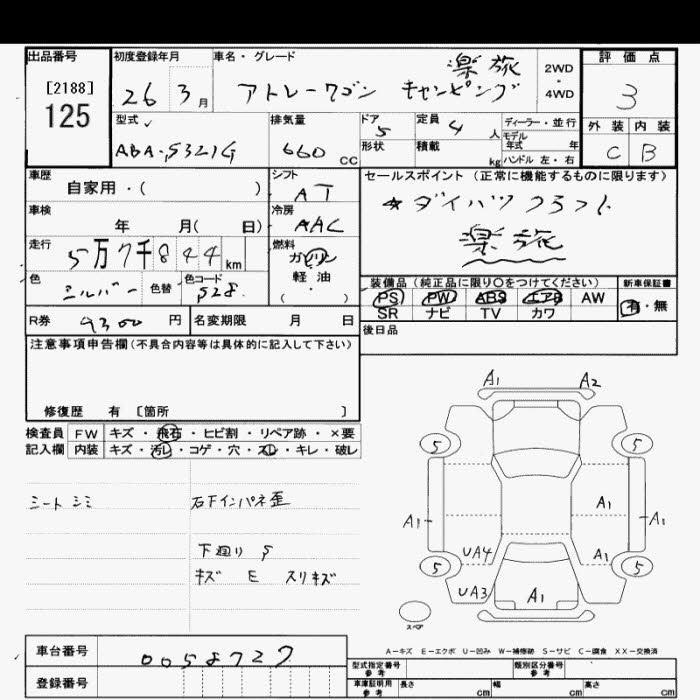 出品番号
[2188]
125
初度登録年月
26 3月
車名・グレード
楽旅
アトレーワゴン キャンピング
2WD
・
4WD
評価点
3
外装 内装
C B
型式
ABA-S321G
排気量
660 CC
ドア
5
形状
定員
4 人
積載
kg
ディーラー・並行
モデル
年式 年
ハンドル 左・右
車歴
自家用・( )
車検
年 月( 日)
走行
5万7千844km
色
シルバー
色替
色コード
S28
シフト
AT
冷房
AAC
燃料
ガソリン
軽・油
( ・ )
セールスポイント (正常に機能するものに限ります)
☆ダイハツクラフト
楽旅
装備品(純正品に限り○をつけてください)
PS PW ABS エアB AW
SR ナビ TV カワ
新車保証書
有・無
後日品
R券 9300 円
名変期限 月 日
注意事項申告欄(不具合内容等は具体的に記入して下さい)
修復歴 有 〔箇所 〕
検査員
記入欄
FW キズ・飛石・ヒビ割・リペア跡・×要
内装 キズ・汚レ・コゲ・穴・スレ・キレ・破レ
シートシミ
右下インパネ歪
下廻り S
キズ E スリキズ
A1 A2
5 5
A1 A1 A1
UA4 A1
5 5
UA3 A1
スペア
A-キズ E-エクボ U-凹み W-補修跡 S-サビ C-腐食 XX-交換済
車台番号 0058727
登録番号
型式指定番号
参考
類別区分番号
参考
車庫証明用
参考
長さ cm 幅 cm 高さ cm